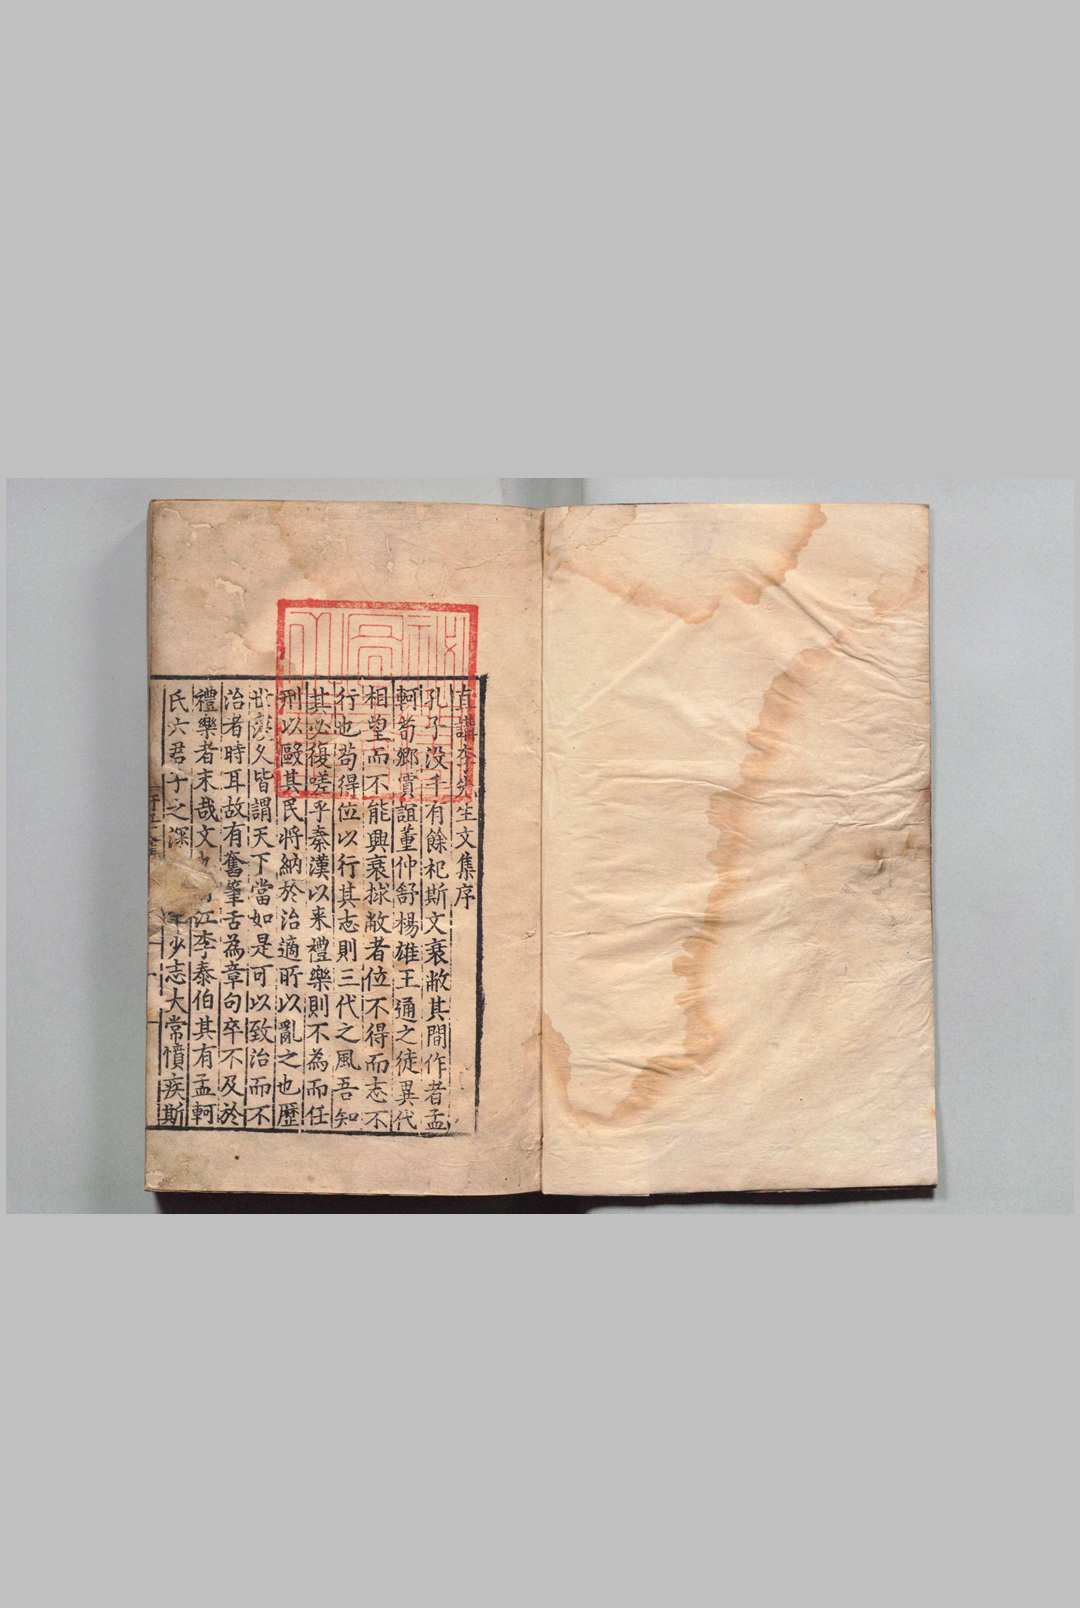 直講李先生文集序
孔子没千有餘祀斯文衰敝其間作者孟
軻荀卿賈誼董仲舒楊雄王通之徒異代
相望而不能興衰捄敝者位不得而志不
行也苟得位以行其志則三代之風吾知
其必復嗟乎秦漢以来禮樂則不為而任
刑以毆其民將納於治適所以亂之也歷
世寖久皆謂天下當如是可以致治而不
治者時耳故有奮筆舌為章句卒不及於
禮樂者末哉文也 江李泰伯其有孟軻
氏六君子之深 年少志大常憤疾斯